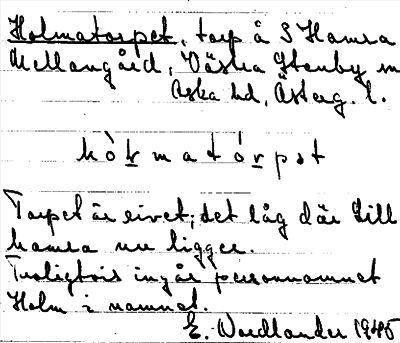 Holmatorpet, torp å S Hamra
Mellangård, Västra Stenby sn
Aska hd, Österg. l.
hòḷmatórpət
Torpet är rivet; det låg där Lill
hamra nu ligger.
Troligtvis ingår personnamnet
Holm i namnet.
E. Nordlander 1945